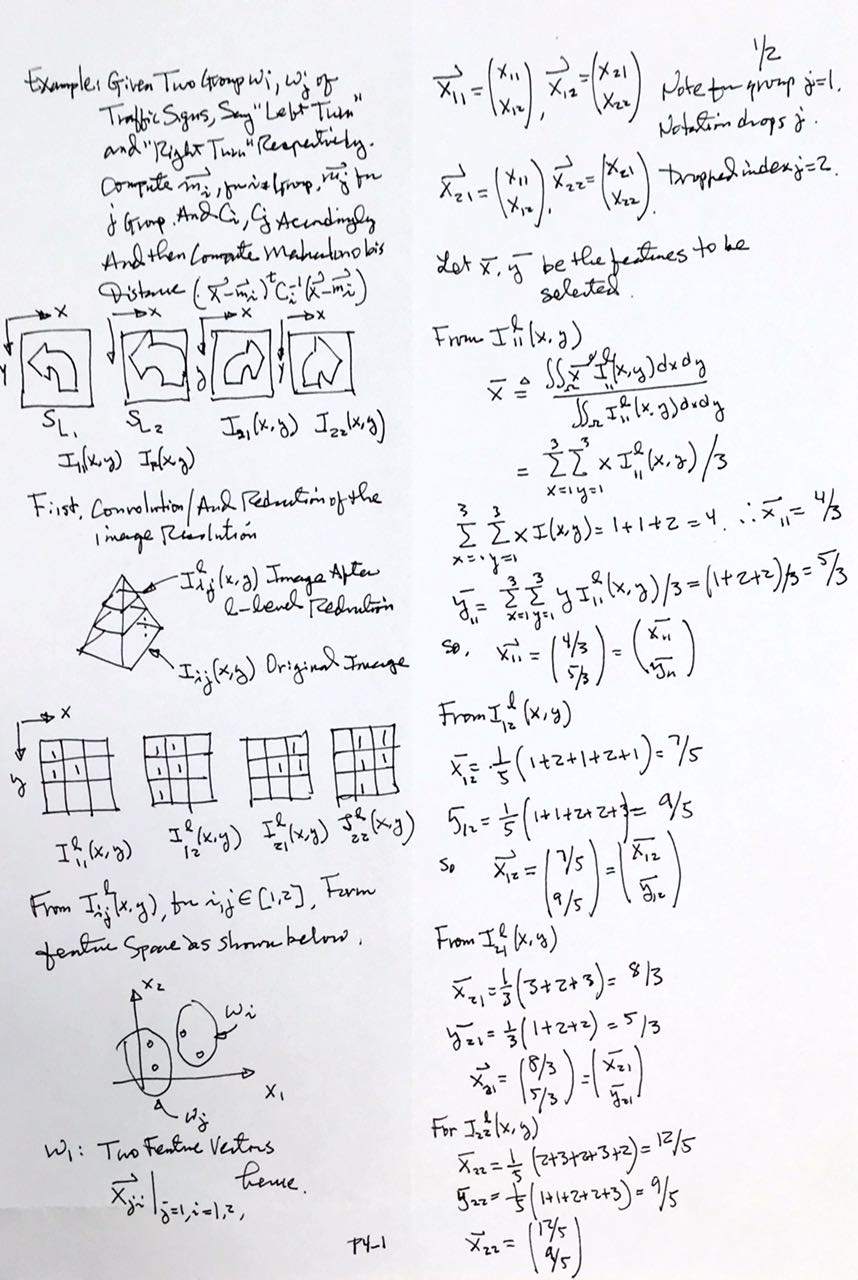 Example: Given Two Group ωi, ωj of
Traffic Signs, Say "Left Turn"
and "Right Turn" Respectively.
Compute m⃗i, for i Group, m⃗j for
j Group. And Ci, Cj Accordingly
And then Compute Mahalanobis
Distance (x⃗-m⃗i)^t Ci^-1 (x⃗-m⃗i)
x x x x
y y y
SL1 SL2 I21(x,y) I22(x,y)
I11(x,y) I12(x,y)
First, Convolution/And Reduction of the
image Resolution
I^l ij(x,y) Image After
l-level Reduction
Iij(x,y) Original Image
x
y
1 1 1 1 1 1
1 1 1 1 1 1 1 1
I^l 11(x,y) I^l 12(x,y) I^l 21(x,y) I^l 22(x,y)
From I^l ij(x,y), for i,j ∈ [1,2], Form
feature Space as shown below.
x2
ωi
x1
ωj
ω1: Two Feature Vectors
X⃗ji | j=1, i=1,2, hence.
P4-1
1/2
X⃗11 = (x11 x12), X⃗12 = (x21 x22) Note for group j=1.
Notation drops j.
X⃗21 = (x11 x12), X⃗22 = (x21 x22). Dropped index j=2.
Let x̄, ȳ be the features to be
selected.
From I^l 11(x,y)
x̄ ≜ ∬Ω x I^l 11(x,y)dxdy / ∬Ω I^l 11(x,y)dxdy
= 3Σx=1 3Σy=1 x I^l 11(x,y)/3
3Σx=1 3Σy=1 x I(x,y) = 1+1+2 = 4. ∴ x̄11 = 4/3
ȳ11 = 3Σx=1 3Σy=1 y I^l 11(x,y)/3 = (1+2+2)/3 = 5/3
so, X⃗11 = (4/3 5/3) = (x̄11 ȳ11)
From I^l 12(x,y)
x̄12 = 1/5 (1+2+1+2+1) = 7/5
ȳ12 = 1/5 (1+1+2+2+3) = 9/5
so X⃗12 = (7/5 9/5) = (x̄12 ȳ12)
From I^l 21(x,y)
x̄21 = 1/3 (3+2+3) = 8/3
ȳ21 = 1/3 (1+2+2) = 5/3
X⃗21 = (8/3 5/3) = (x̄21 ȳ21)
For I^l 22(x,y)
x̄22 = 1/5 (2+3+2+3+2) = 12/5
ȳ22 = 1/5 (1+1+2+2+3) = 9/5
X⃗22 = (12/5 9/5)